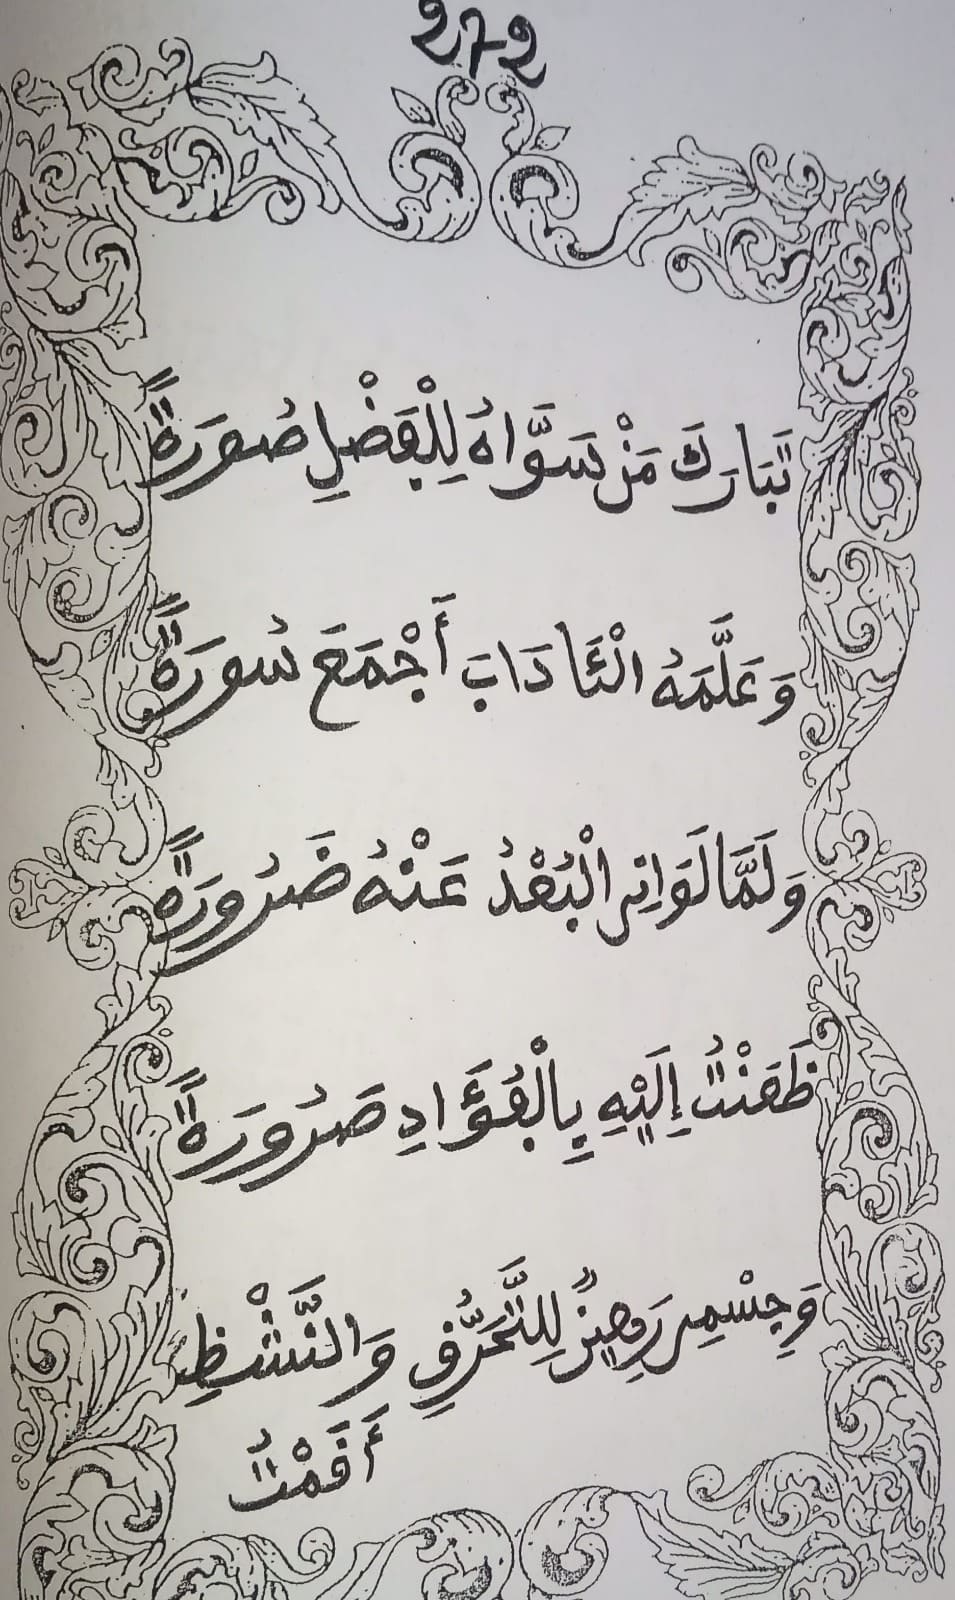 272
تَبَارَكَ مَنْ سَوَّاهُ لِلْفَضْلِ صُورَةً
وَعَلَّمَهُ الْئَادَابَ أَجْمَعَ سُورَةً
وَلَمَّا لَوَانِي الْبُعْدُ عَنْهُ ضَرُورَةً
ظَعَنْتُ إِلَيْهِ بِالْفُؤَادِ صَرُورَةً
وَجِسْمِي رَهِينٌ لِلتَّحَرُّقِ
أَقَمْتُ